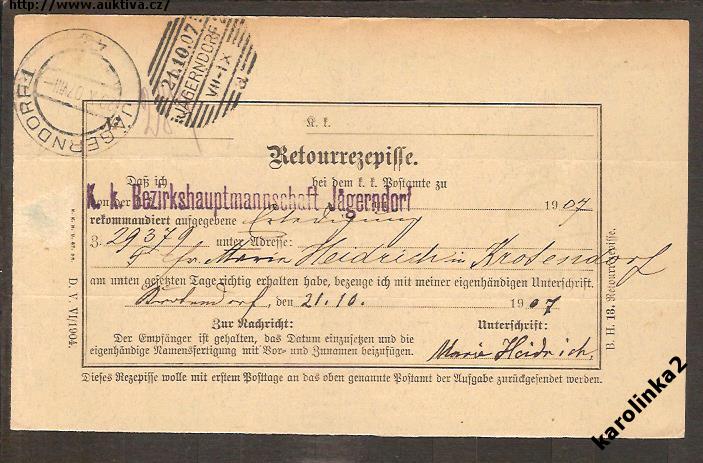 http://www.auktiva.cz/
JÄGERNDORF 1
21.10.07
JÄGERNDORF
VII-IX
K. k.
Retourrezepisse.
Daß ich bei dem k. k. Postamte zu
K. k. Bezirkshauptmannschaft Jägerndorf
von der 1907
rekommandiert aufgegebene Erledigung
Z. 29379 unter Adresse: Fr. Marie Heidrich in Krotendorf
am unten gesetzten Tage richtig erhalten habe, bezeuge ich mit meiner eigenhändigen Unterschrift.
Krotendorf, den 21.10. 1907
Zur Nachricht: Unterschrift:
Der Empfänger ist gehalten, das Datum einzusetzen und die
eigenhändige Namensfertigung mit Vor- und Zunamen beizufügen.
Marie Heidrich.
Dieses Rezepisse wolle mit erstem Posttage an das oben genannte Postamt der Aufgabe zurückgesendet werden.
D. V. VI/1904.
B. H. 13. Retourrezepisse.
karolinka2